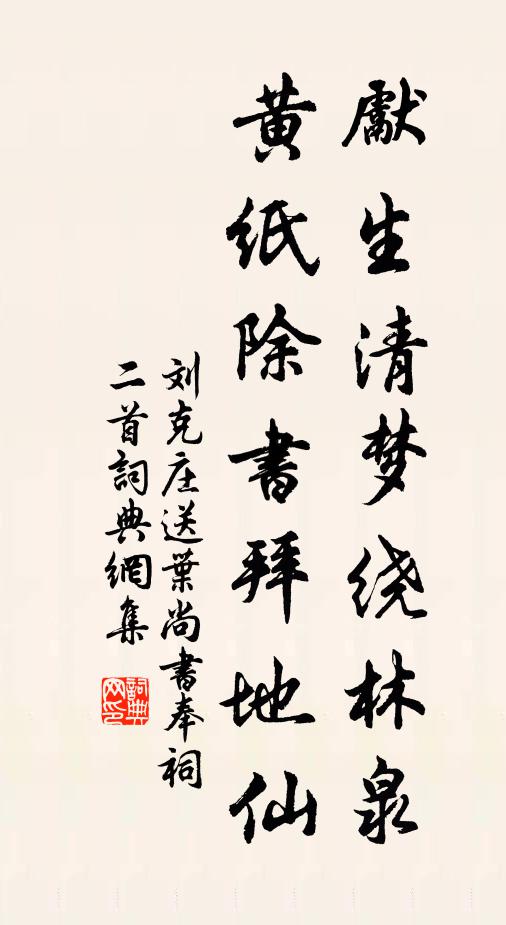 獻生清梦绕林泉
黄纸除書拜地仙
刘克庄送葉尚書奉祠
二首詞典網集
詞典网印